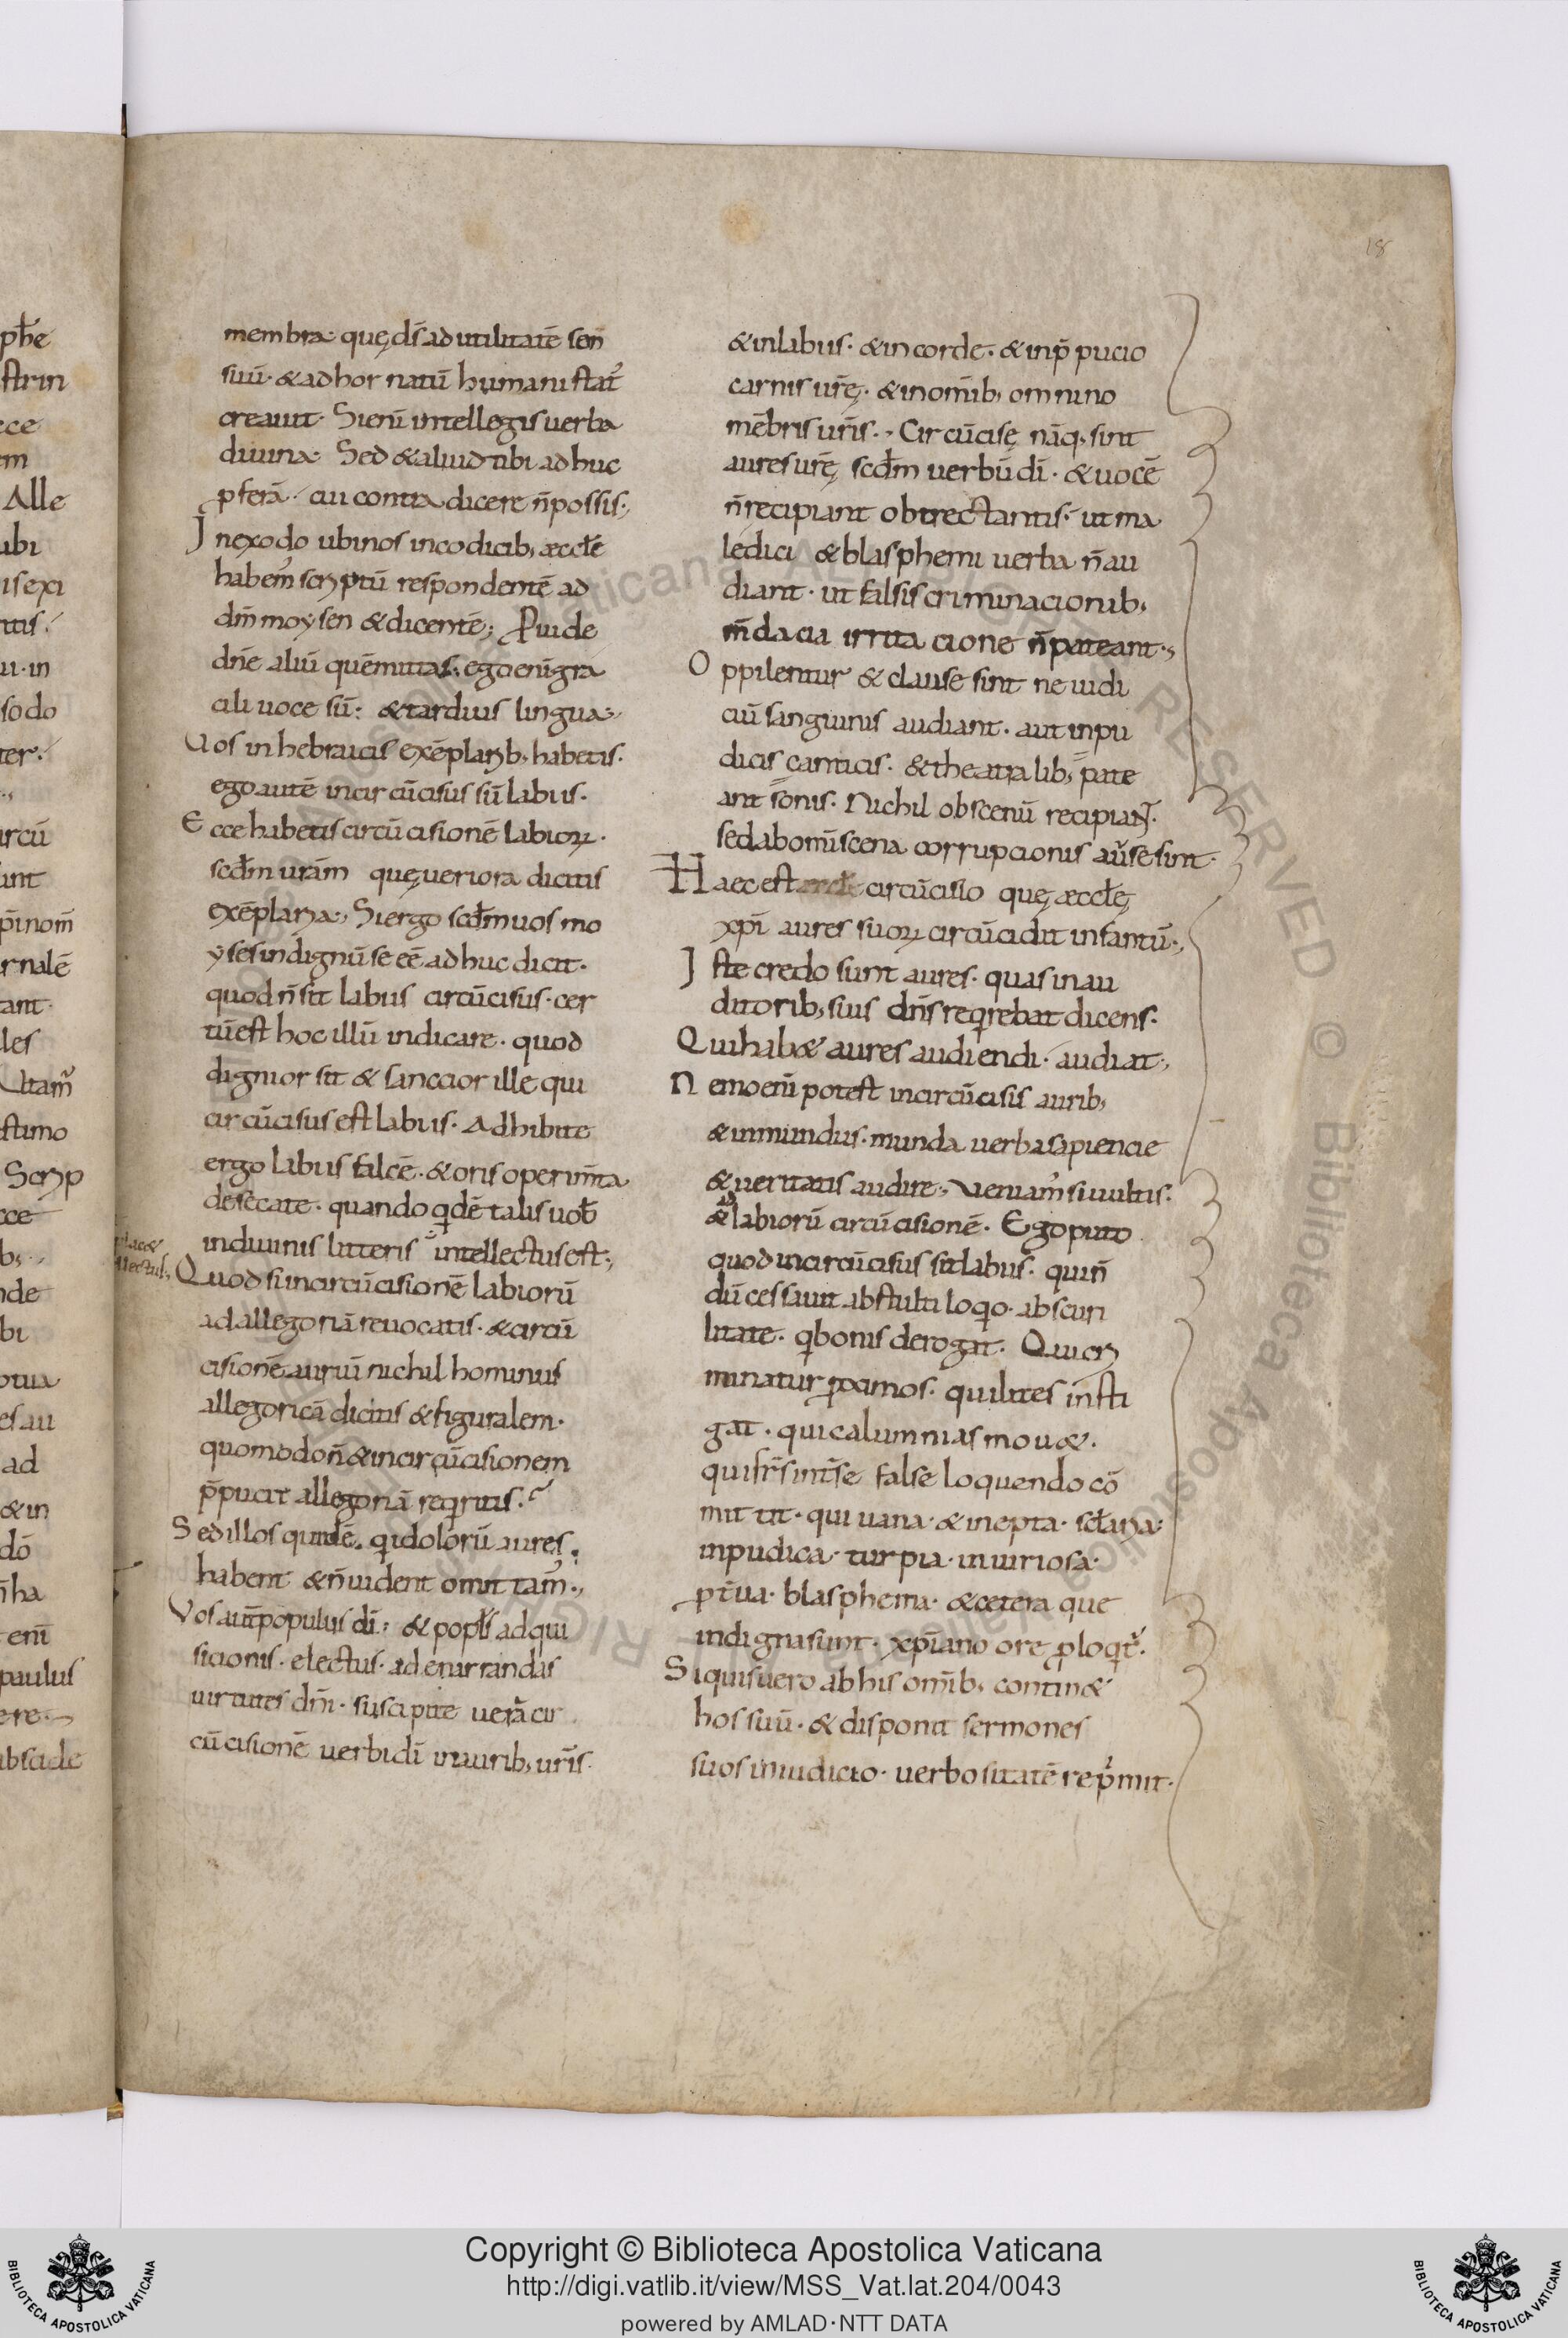 18
membra· quę ds̄ ad utilitatē sen
suū· & ad hor natū humani stat᷒
creauit· Si enī intellegis uerba
diuina· Sed & aliud tibi ad huc
ꝓferā· cui contra dicere n̄ possis·,
In exodo ubi nos in codicib, æccłē
habem᷒ scriptū respondentē ad
dn̄m moysen & dicentē; Prıuide
dn̄e aliū quē mittas· ego enī gra
cili uoce sū: & tardus lingua·,
Uos in hebraicis exēplarib, habetis·
ego autē incircūcisus sū labiis·
Ecce habetis circū cisionē labioꝝ·
scđm urām quę ueriora dicitis
exēplaria·, Si ergo scđm uos mo
yses indignū se eē ad huc dicit·
quod n̄ sit labiis circūcisus· cer
tū est hoc illū indicare· quod
dignior sit & sanccior ille qui
circūcisus est labiis· Adhibite
ergo labiis falcē· & oris operim̄ta
desecate· quando qdē talis uob̄
in diuinis litteris intellectus est·,
Quod si incircūcisionē labiorū
ad allegoriā reuocatis· & circū
cisionē auriū nichil hominus
allegoricā dicitis & figuralem·
quomodo n̄ & in circūcisionem
p̄pucii allegoriā reqritis·
Sed illos quidē· q idolorū aures
habent & n̄ uident omittam᷒·,
Vos aut̄ populus dī: & popłs ad qui
sicionis· electus· ad enarrandas
uirtutes dn̄i· suscipite uerā cir
cū cisionē uerbi dī in aurib, ur̄is·
& in labiis· & in corde· & in p̄pucio
carnis ur̄ę· & in om̄ib, omnino
mēbris ur̄is·, Circūcisę nāq, sint
aures ur̄ę scđm uerbū dī· & uocē
n̄ recipiant obtrectantis· ut ma
ledici & blasphemi uerba n̄ au
diant· ut falsis criminacionib,
m̄dacia irrita cione n̄ pateant·,
Oppilentur & clause sint ne iudi
ciū sanguinis audiant· aut inpu
dicis canticis· & theatralib, pate
ant sonis· Nichil obscenū recipiant·
sed ab om̄i scena corrupcionis au᷒se sint·
Haec est circūcisio quę æccłę
xp̄i aures suoꝝ circūcidit infantū·,
Iste credo sunt aures· quas in au
ditorib, suis dn̄s reqrebat dicens·
Qui hab& aures audiendi· audiat·,
Nemo enī potest incircūcisis aurib,
& inmundis· munda uerba sapiencie
& ueritatis audire·, Veniam᷒ si uultis·
& ad labiorū circūcisionē· Ego puto
quod incircūcisus sit labiis· qui n̄
dū cessauit ab stulti loqo· ab scurri
litate· q bonis derogat· Qui cri
minatur ꝓximos· qui lites insti
gat· qui calumnias mou&·
qui frs̄ int̄ se false loquendo cō
mit tit· qui uana· & inepta· scłaria·
inpudica· turpia· iniuriosa·
ꝓt̄ua· blasphema· & cetera que
indigna sunt· xp̄iano ore ꝓloqt᷒·
Si quis uero ab his om̄ib, contin&
hos suū· & disponit sermones
suos in iudicio· uerbositatē rep̄mit·
Copyright © Biblioteca Apostolica Vaticana
http://digi.vatlib.it/view/MSS_Vat.lat.204/0043
powered by AMLAD·NTT DATA
BIBLIOTECA APOSTOLICA VATICANA
BIBLIOTECA APOSTOLICA VATICANA